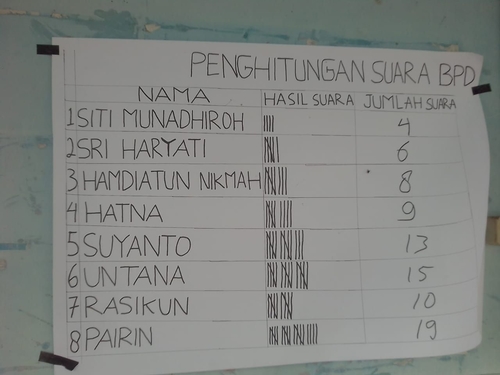 PENGHITUNGAN SUARA BPD
NAMA HASIL SUARA JUMLAH SUARA
1 SITI MUNADHIROH 4
2 SRI HARYATI 6
3 HAMDIATUN NIKMAH 8
4 HATNA 9
5 SUYANTO 13
6 UNTANA 15
7 RASIKUN 10
8 PAIRIN 19